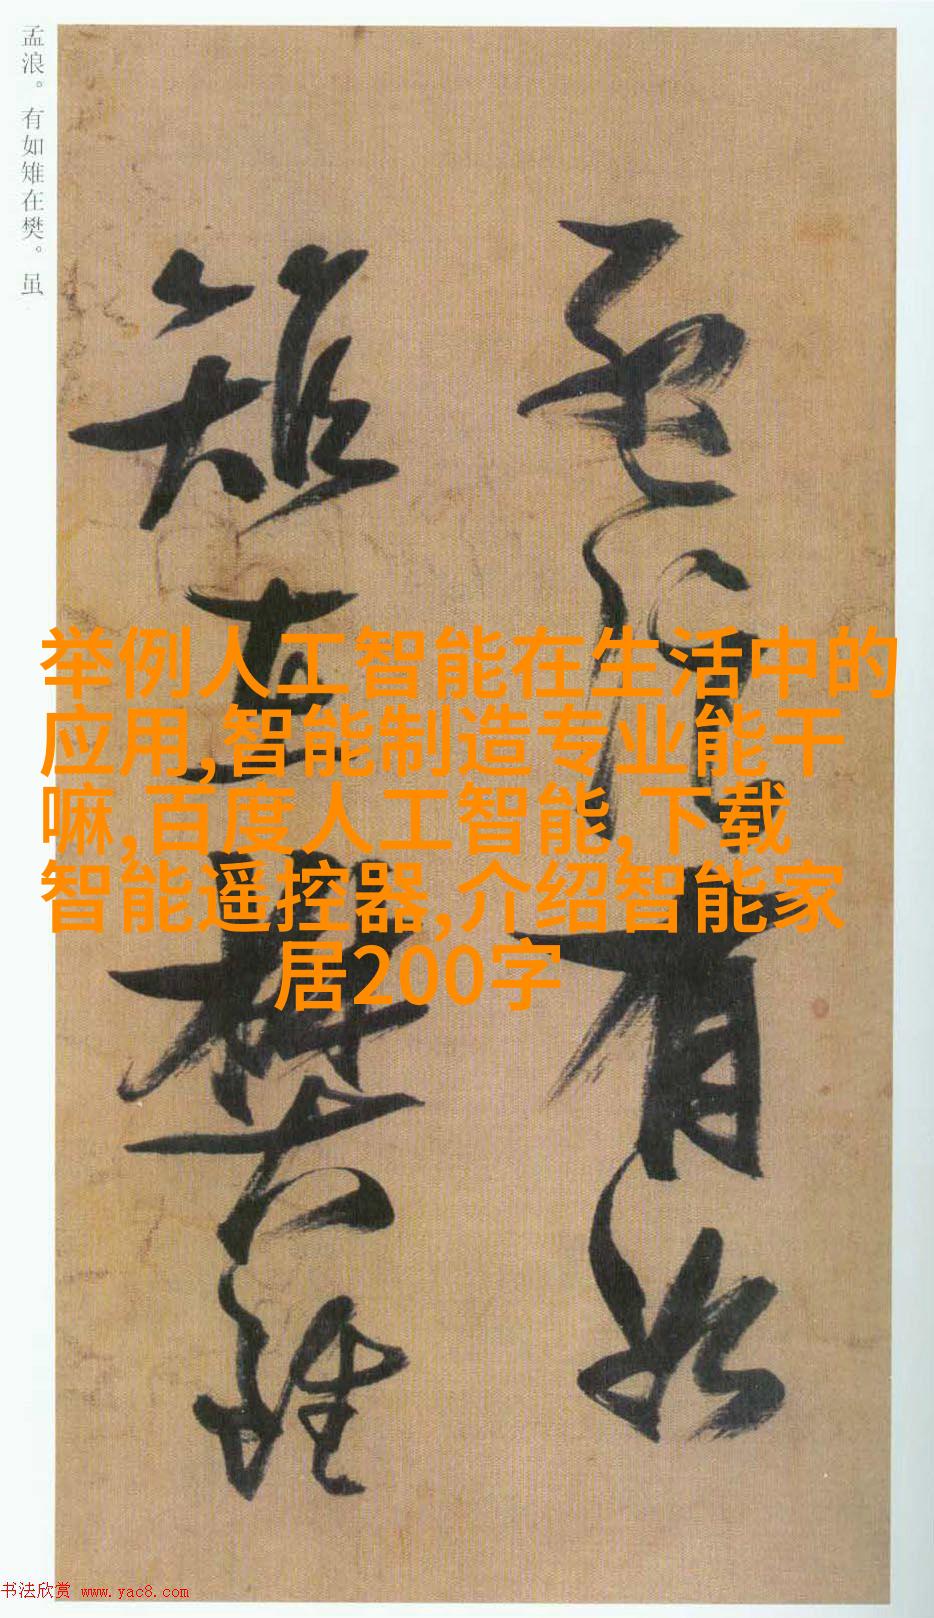 孟浪。有如雉在樊。虽
孟浪有如
雉在樊虽
举例人工智能在生活中的
应用,智能制造专业能干
嘛,百度人工智能,下载
智能遥控器,介绍智能家
居200字
书法欣赏 www.yac8.com